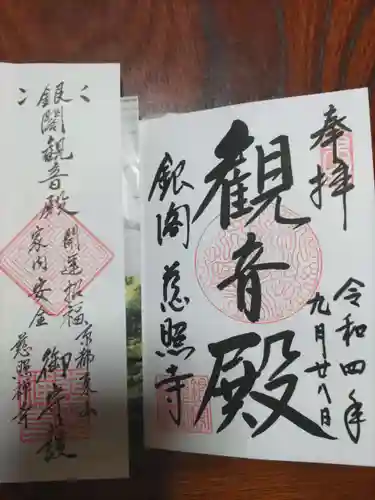 奉拝
令和四年
九月廿八日
観音殿
銀閣 慈照寺
京都東山
開運招福
銀閣観音殿
家内安全
御守護
慈照禅寺